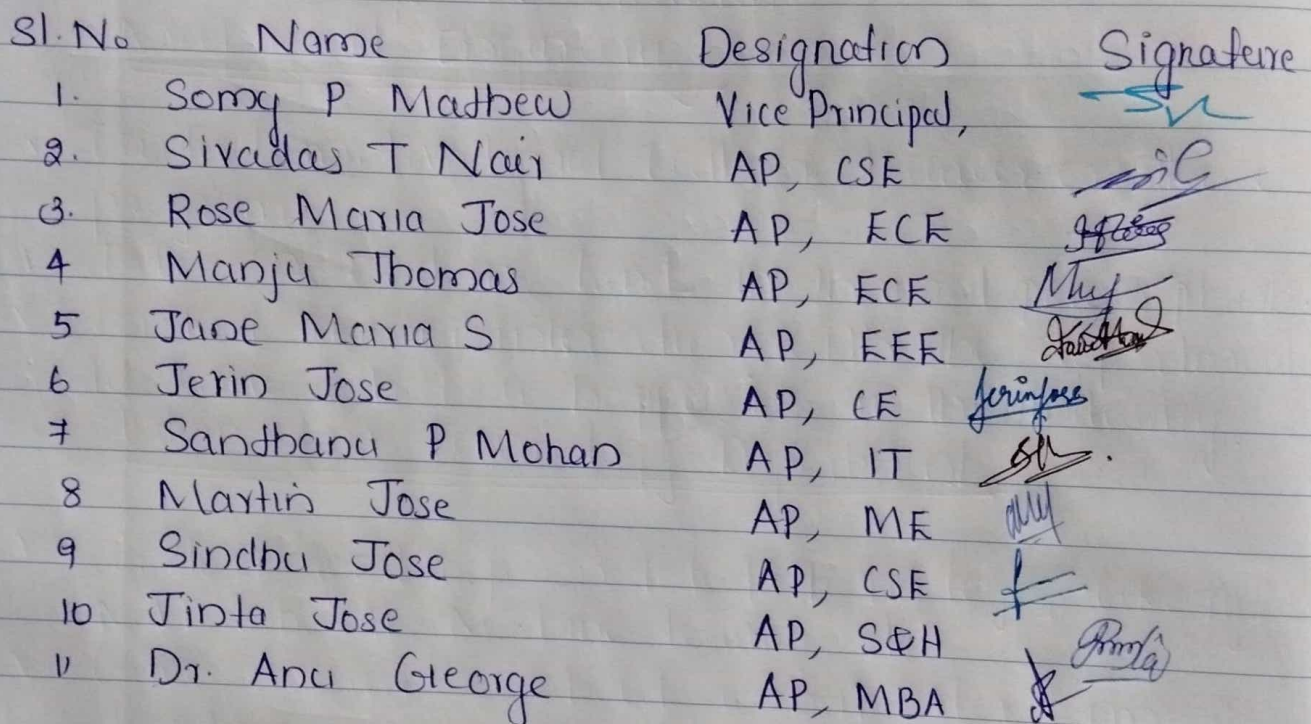 Sl. No Name Designation Signature
1. Somy P Mathew Vice Principal,
2. Sivadas T Nair AP, CSE
3. Rose Maria Jose AP, ECE
4 Manju Thomas AP, ECE
5 Jane Maria S AP, EEE
6 Jerin Jose AP, CE Jerin Jose
7 Santhanu P Mohan AP, IT
8 Martin Jose AP, ME
9 Sindhu Jose AP, CSE
10 Jinta Jose AP, S&H
11 Dr. Anu George AP, MBA